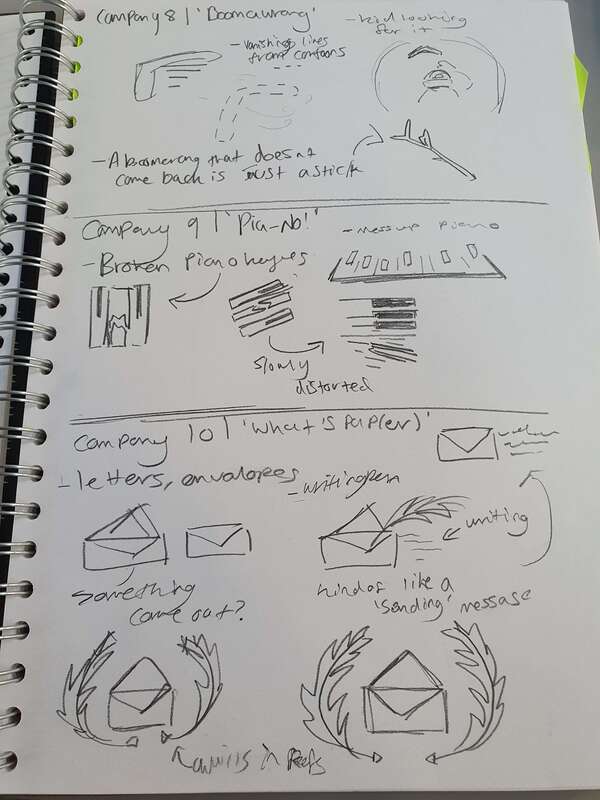 Company 8 | 'Boomawrang'
- vanishing lines
from cartoons
- kid looking
for it
- A boomerang that doesn't
come back is just a stick
Company 9 | 'Pia-No!'
- Messup piano
- Broken piano keyes
slowly
distorted
Company 10 | 'What's Pap(er)'
- letters, envalopes
- writing pen
writing
something
come out?
kind of like a
'sending' message
quills in